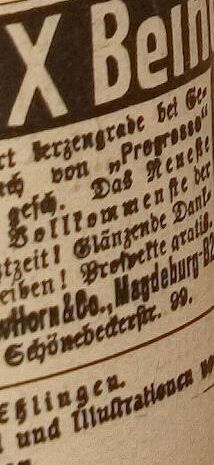 X Bein
rt kerzengrade bei Ge-
ach von „Progresso"
gesch. Das Neueste
Vollkommenste der
tzeit! Glänzende Dank-
eiben! Prospekte gratis.
Horn & Co., Magdeburg-B
Schönebeckerstr. 99.
Eßlingen.
und Illustrationen v